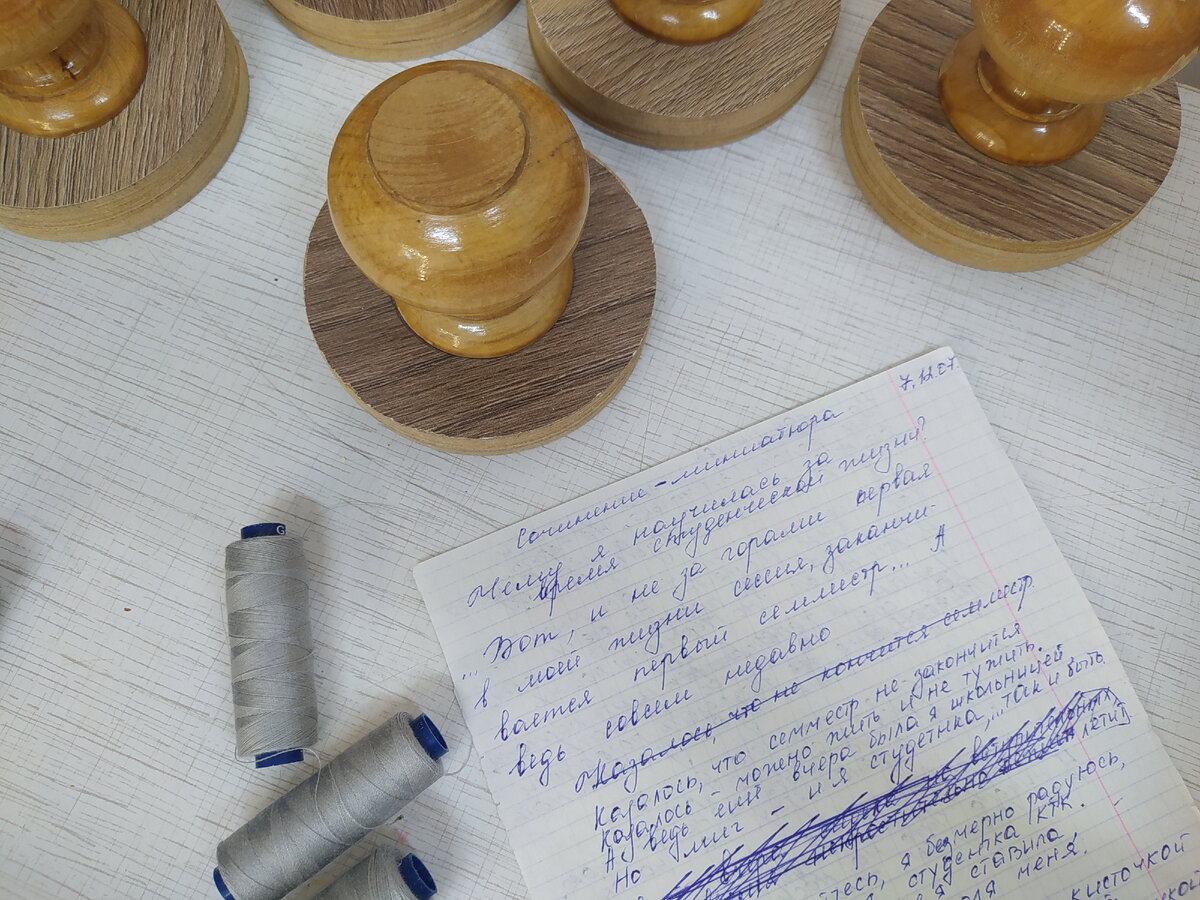 7.12.07.
Сочинение-миниатюра
Чему я научилась за
время студенческой жизни?
"...Вот, и не за горами первая
в моей жизни сессия, заканчи-
вается первый семместр... А
ведь совсем недавно
Казалось, что не кончится семестр.
Казалось, что семместр не закончится
Казалось - можно жить и не тужить.
А ведь ещё вчера была я школьницей
миг - и я студетнка,...Так и быть.
Но
летит
я безмерно радуюсь,
студентка КТК.
ставила
для меня.
кисточкой